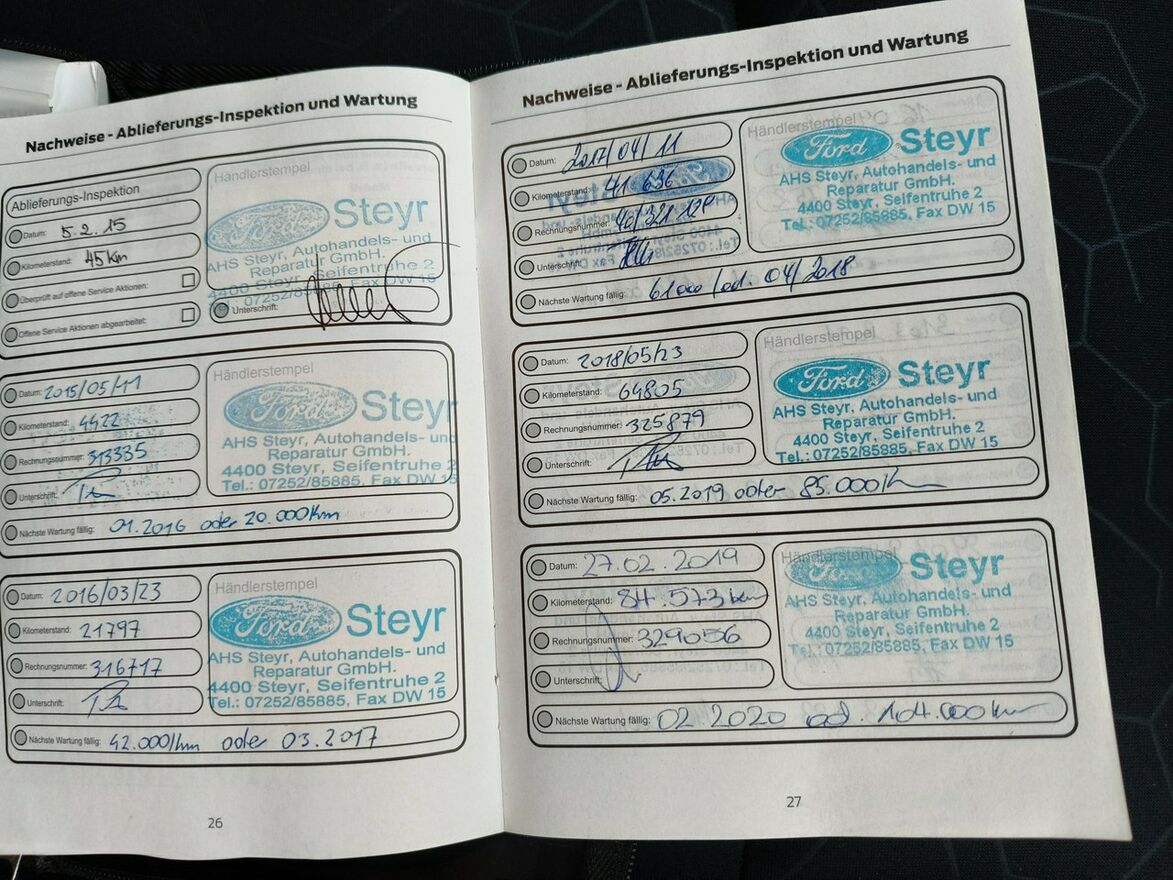 Nachweise - Ablieferungs-Inspektion und Wartung
Ablieferungs-Inspektion
Datum: 5.2.15
Kilometerstand: 45 Km
Überprüft auf offene Service Aktionen:
Offene Service Aktionen abgearbeitet:
Händlerstempel
Ford Steyr
AHS Steyr, Autohandels- und
Reparatur GmbH.
4400 Steyr, Seifentruhe 2
Tel.: 07252/85885, Fax DW 15
Unterschrift:
Datum: 2015/05/11
Kilometerstand: 4422
Rechnungsnummer: 313335
Unterschrift:
Händlerstempel
Ford Steyr
AHS Steyr, Autohandels- und
Reparatur GmbH.
4400 Steyr, Seifentruhe 2
Tel.: 07252/85885, Fax DW 15
Nächste Wartung fällig: 01.2016 oder 20.000Km
Datum: 2016/03/23
Kilometerstand: 21797
Rechnungsnummer: 316717
Unterschrift:
Händlerstempel
Ford Steyr
AHS Steyr, Autohandels- und
Reparatur GmbH.
4400 Steyr, Seifentruhe 2
Tel.: 07252/85885, Fax DW 15
Nächste Wartung fällig: 42.000/km oder 03.2017
26
Nachweise - Ablieferungs-Inspektion und Wartung
Datum: 2017/04/11
Kilometerstand: 41 636
Rechnungsnummer:
Unterschrift:
Händlerstempel
Ford Steyr
AHS Steyr, Autohandels- und
Reparatur GmbH.
4400 Steyr, Seifentruhe 2
Tel.: 07252/85885, Fax DW 15
Nächste Wartung fällig: 61000/od. 04/2018
Datum: 2018/05/23
Kilometerstand: 64805
Rechnungsnummer: 325879
Unterschrift:
Händlerstempel
Ford Steyr
AHS Steyr, Autohandels- und
Reparatur GmbH.
4400 Steyr, Seifentruhe 2
Tel.: 07252/85885, Fax DW 15
Nächste Wartung fällig: 05.2019 oder 85.000Km
Datum: 27.02.2019
Kilometerstand: 84.573 km
Rechnungsnummer: 329056
Unterschrift:
Händlerstempel
Ford Steyr
AHS Steyr, Autohandels- und
Reparatur GmbH.
4400 Steyr, Seifentruhe 2
Tel.: 07252/85885, Fax DW 15
Nächste Wartung fällig: 02.2020 od. 104.000Km
27